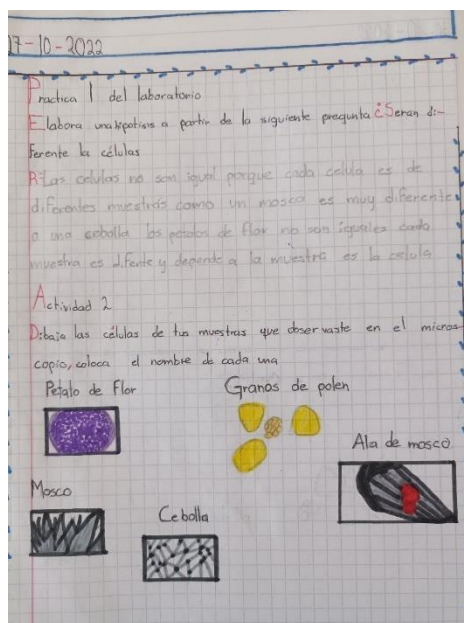 17-10-2022
Practica 1 del laboratorio
Elabora una hipotisis a partir de la siguiente pregunta ¿Seran di-
ferente la células
R= Las celulas no son igual porque cada celula es de
diferentes muestras como un mosco es muy diferente
a una cebolla los petalos de flor no son iguales cada
muestra es difente y depende a la muestra es la celula
Actividad 2
Dibaja las células de tus muestras que observaste en el micros-
copio, coloca el nombre de cada una
Petalo de Flor
Granos de polen
Ala de mosco
Mosco
Cebolla